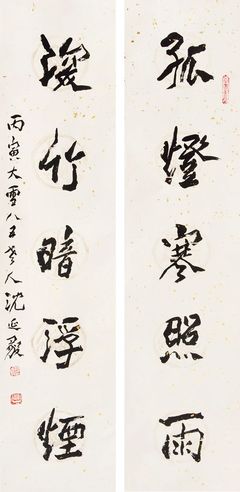 孤燈寒照雨
深竹暗浮煙
丙寅大雪八五老人沈延毅